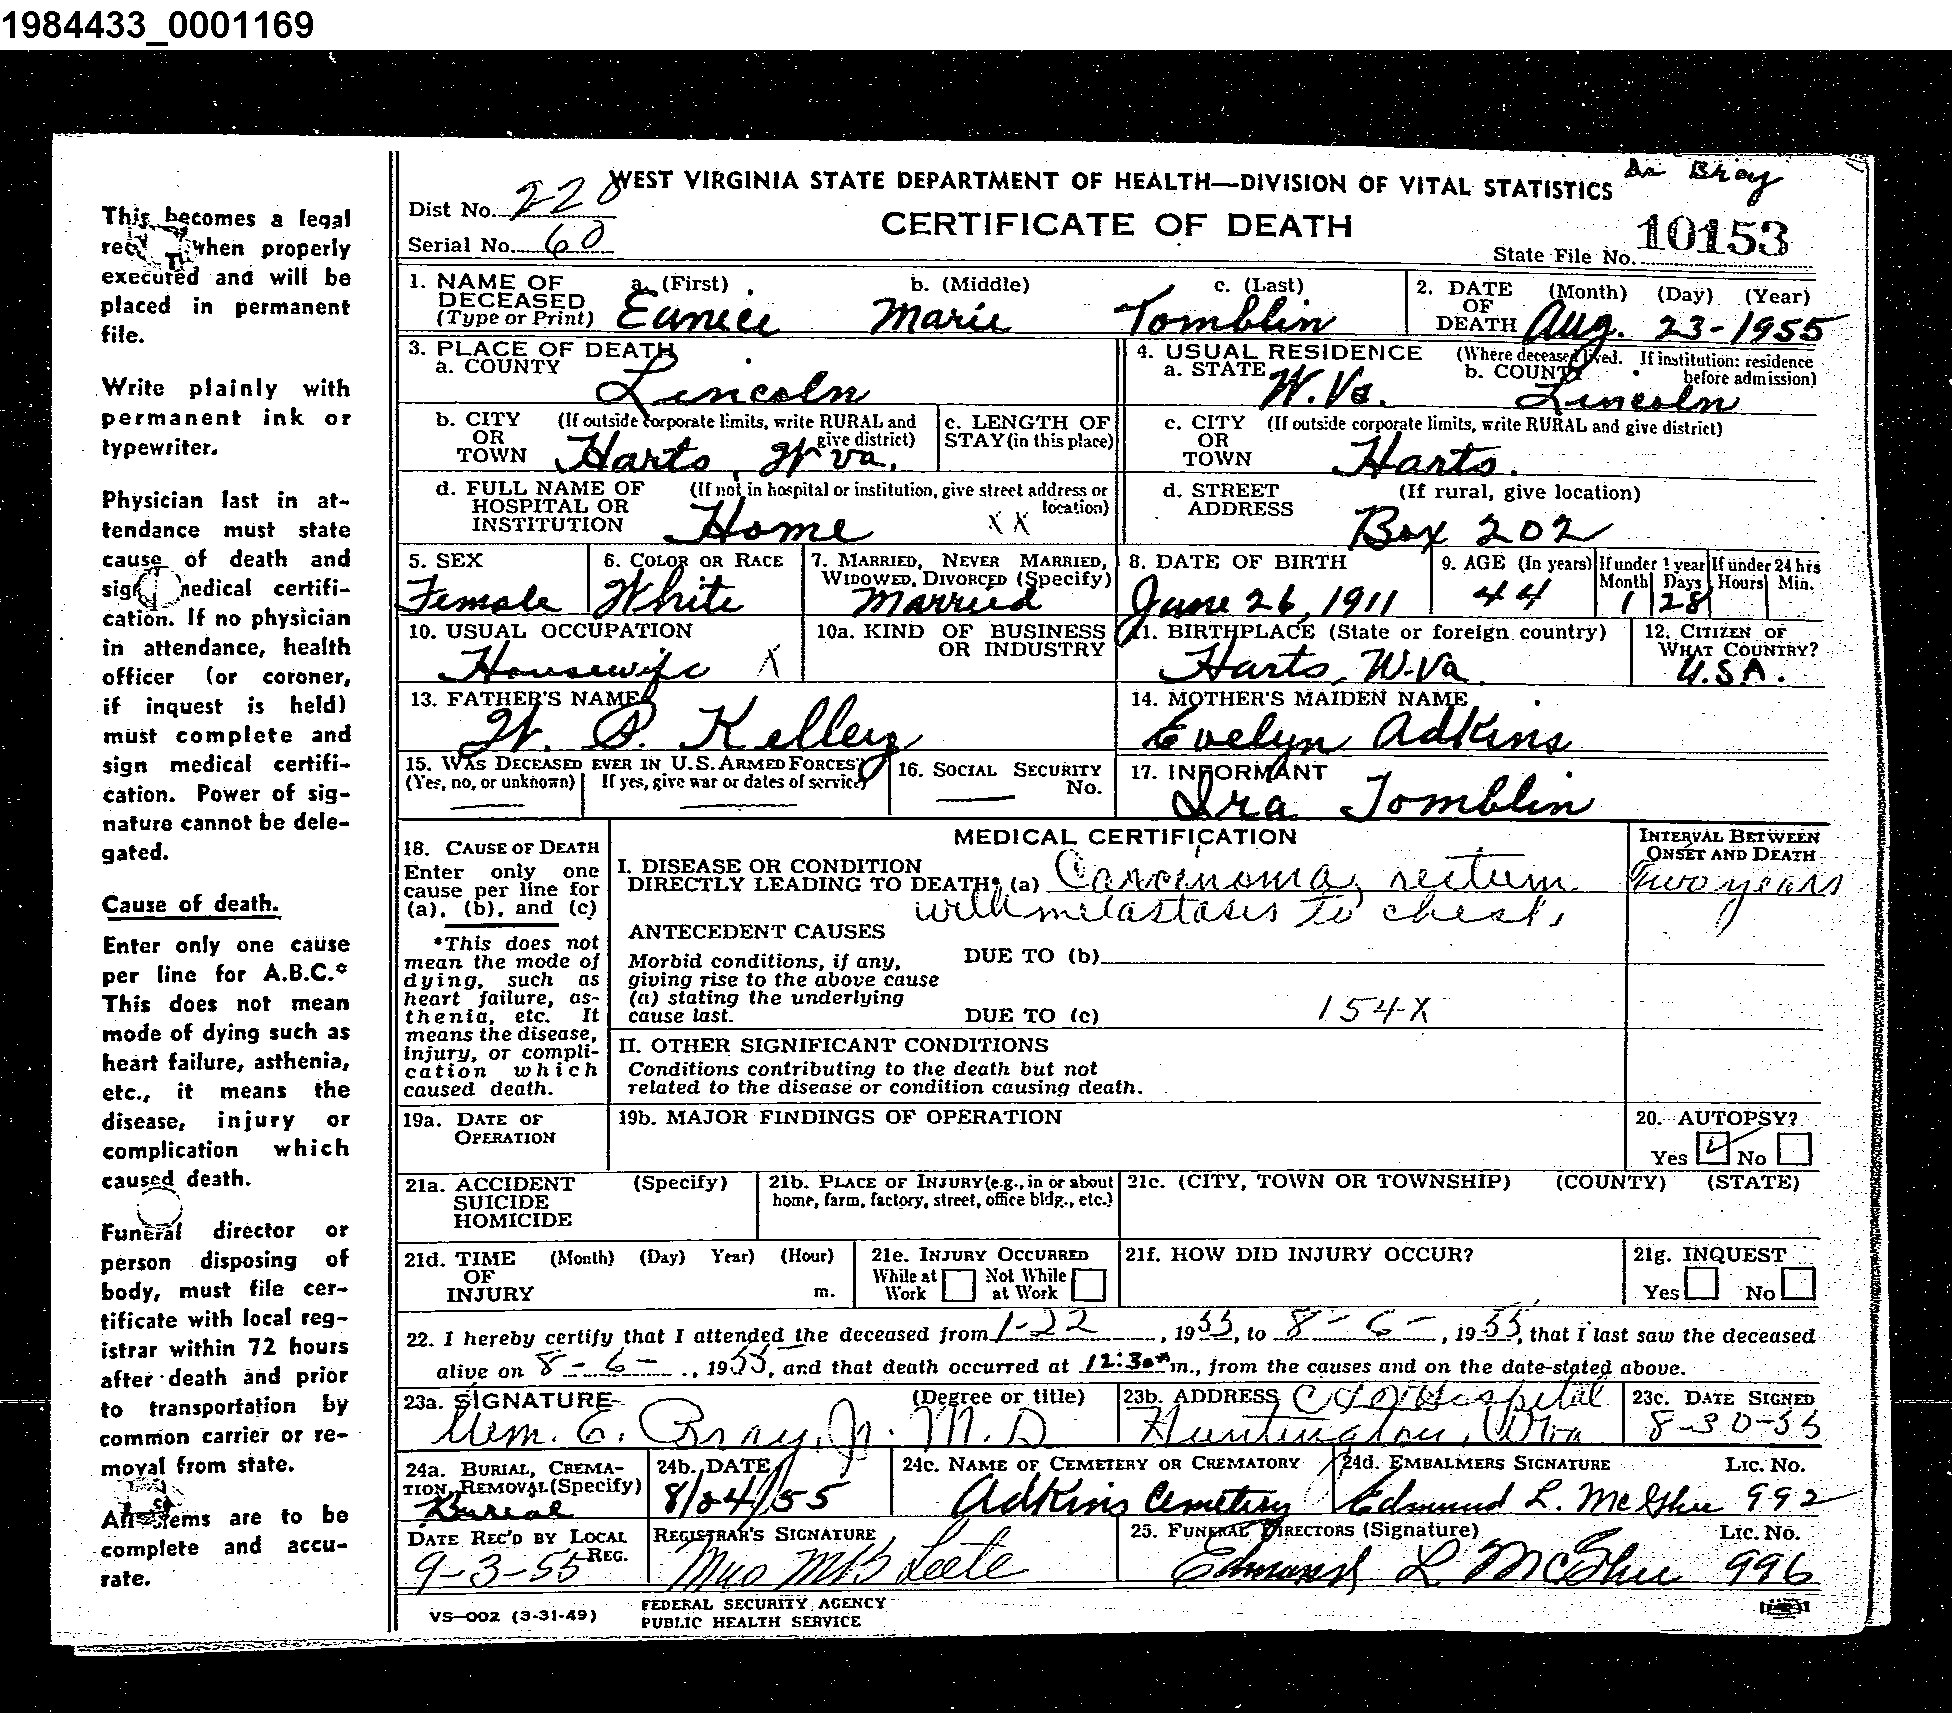 1984433_0001169
Dr Bray
WEST VIRGINIA STATE DEPARTMENT OF HEALTH—DIVISION OF VITAL STATISTICS
Dist No. 220
CERTIFICATE OF DEATH
Serial No. 60
State File No. 10153
1. NAME OF DECEASED (Type or Print) a. (First) Eunice b. (Middle) Marie c. (Last) Tomblin
2. DATE OF DEATH (Month) (Day) (Year) Aug. 23-1955
3. PLACE OF DEATH
a. COUNTY Lincoln
4. USUAL RESIDENCE (Where deceased lived. If institution: residence before admission)
a. STATE W.Va. b. COUNTY Lincoln
b. CITY OR TOWN (If outside corporate limits, write RURAL and give district) Harts, W va.
c. LENGTH OF STAY (in this place)
c. CITY OR TOWN (If outside corporate limits, write RURAL and give district) Harts.
d. FULL NAME OF HOSPITAL OR INSTITUTION (If not in hospital or institution, give street address or location) Home XX
d. STREET ADDRESS (If rural, give location) Box 202
5. SEX Female
6. COLOR OR RACE White
7. MARRIED, NEVER MARRIED, WIDOWED, DIVORCED (Specify) Married
8. DATE OF BIRTH June 26, 1911
9. AGE (In years) 44
If under 1 year Month 1 Days 28
If under 24 hrs Hours Min.
10. USUAL OCCUPATION Housewife X
10a. KIND OF BUSINESS OR INDUSTRY
11. BIRTHPLACE (State or foreign country) Harts, W.Va.
12. CITIZEN OF WHAT COUNTRY? U.S.A.
13. FATHER'S NAME W. P. Kelley
14. MOTHER'S MAIDEN NAME Evelyn Adkins
15. WAS DECEASED EVER IN U.S. ARMED FORCES?
(Yes, no, or unknown) If yes, give war or dates of service)
16. SOCIAL SECURITY No.
17. INFORMANT Ira Tomblin
18. CAUSE OF DEATH
Enter only one cause per line for (a), (b), and (c)
*This does not mean the mode of dying, such as heart failure, asthenia, etc. It means the disease, injury, or complication which caused death.
MEDICAL CERTIFICATION
INTERVAL BETWEEN ONSET AND DEATH
I. DISEASE OR CONDITION DIRECTLY LEADING TO DEATH* (a) Carcinoma, rectum Two years
with metastases to chest,
ANTECEDENT CAUSES
Morbid conditions, if any, giving rise to the above cause (a) stating the underlying cause last.
DUE TO (b)
DUE TO (c) 154-X
II. OTHER SIGNIFICANT CONDITIONS
Conditions contributing to the death but not related to the disease or condition causing death.
19a. DATE OF OPERATION
19b. MAJOR FINDINGS OF OPERATION
20. AUTOPSY?
Yes No
21a. ACCIDENT SUICIDE HOMICIDE (Specify)
21b. PLACE OF INJURY (e.g., in or about home, farm, factory, street, office bldg., etc.)
21c. (CITY, TOWN OR TOWNSHIP) (COUNTY) (STATE)
21d. TIME OF INJURY (Month) (Day) Year) (Hour) m.
21e. INJURY OCCURRED
While at Work Not While at Work
21f. HOW DID INJURY OCCUR?
21g. INQUEST
Yes No
22. I hereby certify that I attended the deceased from 1-22, 1955, to 8-6-, 1955, that I last saw the deceased
alive on 8-6-, 1955, and that death occurred at 12:30 m., from the causes and on the date stated above.
23a. SIGNATURE (Degree or title) Wm. E. Bray, Jr. M.D
23b. ADDRESS C & O Hospital
Huntington, WVa
23c. DATE SIGNED 8-30-55
24a. BURIAL, CREMATION, REMOVAL (Specify) Bureal
24b. DATE 8/24/55
24c. NAME OF CEMETERY OR CREMATORY Adkins Cemetery
24d. EMBALMERS SIGNATURE Lic. No. Edmund L. McGhee 992
DATE REC'D BY LOCAL REG. 9-3-55
REGISTRAR'S SIGNATURE Mrs MB Leete
25. FUNERAL DIRECTORS (Signature) Lic. No. Edmund L McGhee 996
VS—002 (3-31-49)
FEDERAL SECURITY AGENCY
PUBLIC HEALTH SERVICE
This becomes a legal
when properly
executed and will be
placed in permanent
file.
Write plainly with
permanent ink or
typewriter.
Physician last in at-
tendance must state
cause of death and
sign medical certifi-
cation. If no physician
in attendance, health
officer (or coroner,
if inquest is held)
must complete and
sign medical certifi-
cation. Power of sig-
nature cannot be dele-
gated.
Cause of death.
Enter only one cause
per line for A.B.C.*
This does not mean
mode of dying such as
heart failure, asthenia,
etc., it means the
disease, injury or
complication which
caused death.
Funeral director or
person disposing of
body, must file cer-
tificate with local reg-
istrar within 72 hours
after death and prior
to transportation by
common carrier or re-
moval from state.
All items are to be
complete and accu-
rate.